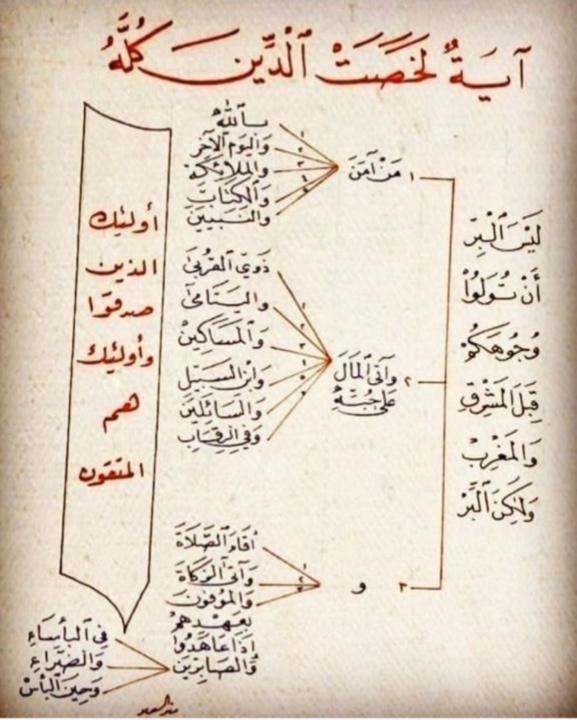 آيَةٌ لَخَّصَتْ ٱلْدِّينَ كُلَّهُ
لَيْسَ ٱلْبِرَّ
أَنْ تُوَلُّوا
وُجُوهَكُمْ
قِبَلَ ٱلْمَشْرِقِ
وَٱلْمَغْرِبِ
وَلَكِنَّ ٱلْبِرَّ
١ مَنْ آمَنَ
١ بِٱللهِ
٢ وَٱلْيَوْمِ ٱلآخِرِ
٣ وَٱلْمَلَائِكَةِ
٤ وَٱلْكِتَابِ
٥ وَٱلنَّبِيِّينَ
٢ وَآتَى ٱلْمَالَ
عَلَى حُبِّهِ
١ ذَوِي ٱلْقُرْبَى
٢ وَٱلْيَتَامَى
٣ وَٱلْمَسَاكِينَ
٤ وَٱبْنَ ٱلْسَبِيلِ
٥ وَٱلسَّائِلِينَ
٦ وَفِي ٱلرِّقَابِ
٣ و
١ أَقَامَ ٱلصَّلَاةَ
٢ وَآتَى ٱلزَّكَاةَ
٣ وَٱلْمُوفُونَ
بِعَهْدِهِمْ
إِذَا عَاهَدُوا
وَٱلصَّابِرِينَ
فِي ٱلْبَأْسَاءِ
وَٱلضَّرَّاءِ
وَحِينَ ٱلْبَأْسِ
أولئك
الذين
صدقوا
وأولئك
هم
المتقون